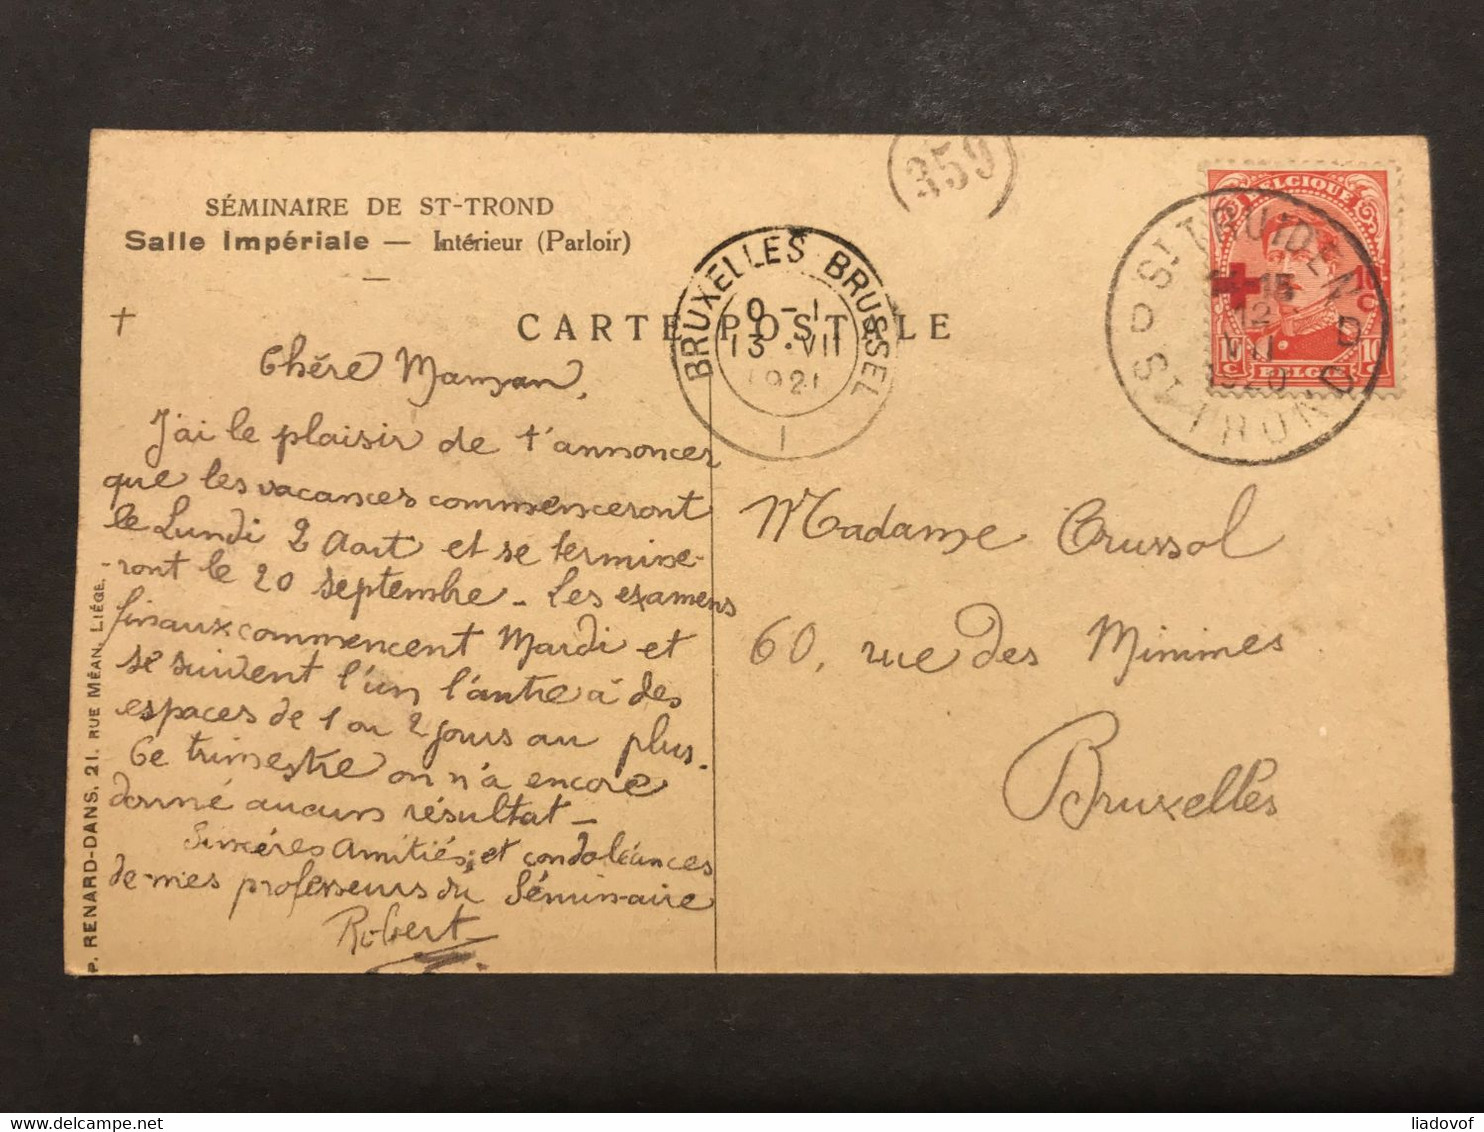 SÉMINAIRE DE ST-TROND
Salle Impériale — Intérieur (Parloir)
CARTE POSTALE
359
BRUXELLES BRUSSEL
0-1
13 VII
1921
1
ST TRUIDEN
D
ST TROND
D
15
12
VII
1920
BELGIQUE
10
C
10
C
BELGIË
10
C
Chére Maman,
J'ai le plaisir de t'annoncer
que les vacances commenceront
le Lundi 2 Aout et se termine-
-ront le 20 septembre - Les examens
finaux commencent Mardi et
se suivent l'un l'autre à des
espaces de 1 ou 2 jours au plus.
6e trimestre on n'a encore
donné aucun résultat -
Sincéres Amitiés, et condoléances
de mes professeurs du Séminaire
Robert
Madame Crussol
60, rue des Minimes
Bruxelles
P. RENARD-DANS, 21, RUE MÉAN, LIÉGE.
Delcampe.net
liadovof